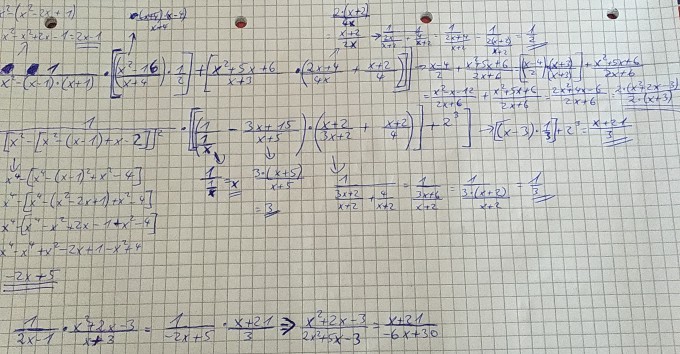 x² - (x² - 2x + 1)
x² - x² + 2x - 1 = 2x - 1
(x+4)(x-4) / x+4
2·(x+2) / 4x
= x+2 / 2x → 1 / (2x / x+2) + 4 / x+2 = 1 / (2x+4 / x+2) = 1 / (2(x+2) / x+2) = 1/2
1 / x² - (x-1)·(x+1) · [[(x² - 16) / (x+4) · 1/2] + [x² + 5x + 6 / x+3 · (2x+4 / 4x + x+2 / 4)]] → x-4 / 2 + x² + 5x + 6 / 2x+6 = (x-4 / 2)(x+3 / x+3) + x² + 5x + 6 / 2x+6
= x² - x - 12 / 2x+6 + x² + 5x + 6 / 2x+6 = 2x² + 4x - 6 / 2x+6 = 2·(x² + 2x - 3) / 2·(x+3)
1 / [x² - [x² - (x-1) + x - 2]]² · [[(1 / (1/x) - 3x+15 / x+5)·(x+2 / 3x+2 + x+2 / 4)] + 2³] → [(x-3)·1/3] + 2³ = x+21 / 3
x⁴ - [x⁴ - (x-1)² + x² - 4]
1 / (1/x) = x
3·(x+5) / x+5
= 3
1 / (3x+2 / x+2 + 4 / x+2) = 1 / (3x+6 / x+2) = 1 / (3·(x+2) / x+2) = 1/3
x⁴ - [x⁴ - (x² - 2x + 1) + x² - 4]
x⁴ - [x⁴ - x² + 2x - 1 + x² - 4]
x⁴ - x⁴ + x² - 2x + 1 - x² + 4
-2x + 5
1 / 2x-1 · x² + 2x - 3 / x+3 = 1 / -2x+5 · x+21 / 3 ⇒ x² + 2x - 3 / 2x² + 5x - 3 = x+21 / -6x+30